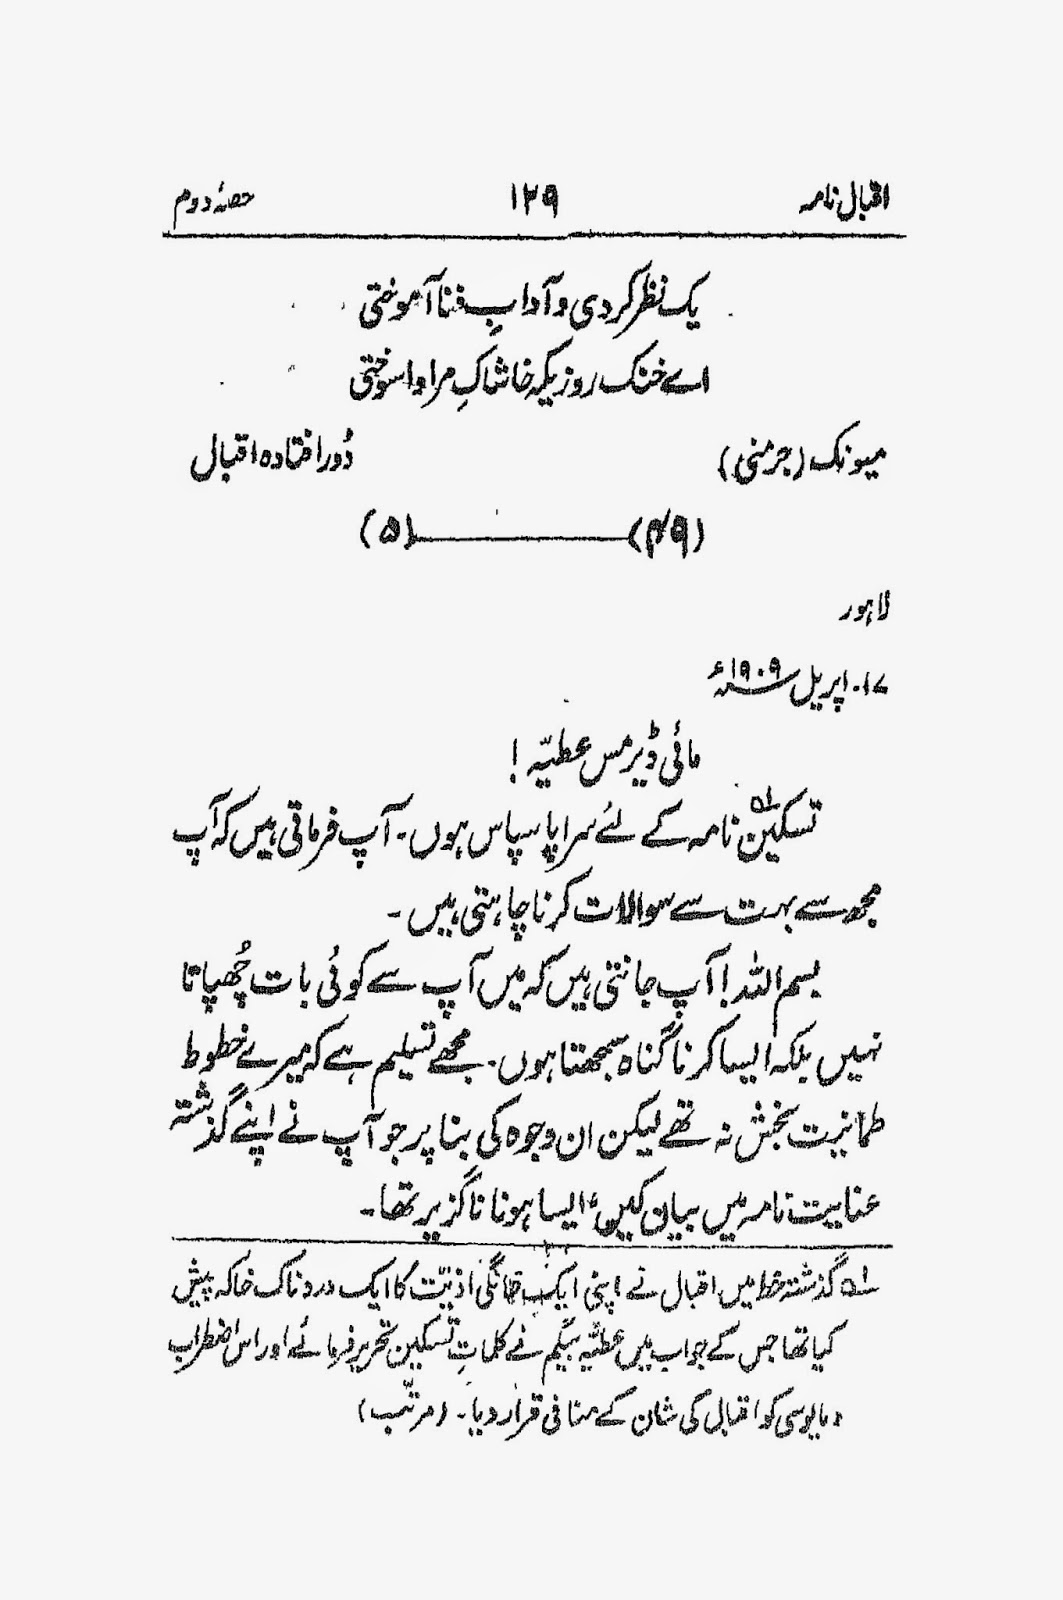 اقبال نامہ ۱۲۹ حصۂ دوم
یک نظر کردی و آدابِ فنا آموختی
اے خنک روزیکہ خاشاکِ مرا وا سوختی
میونک (جرمنی) دُور افتادہ اقبال
(۴۹) ــــــــــــ (۵)
لاہور
۱۷۔ اپریل ۱۹۰۹ء
مائی ڈیر مس عطیّہ !
تسکین نامہ ۱ہ کے لئے سراپا سپاس ہوں۔ آپ فرماتی ہیں کہ آپ
مجھ سے بہت سے سوالات کرنا چاہتی ہیں۔
بسم اللہ! آپ جانتی ہیں کہ میں آپ سے کوئی بات چُھپاتا
نہیں بلکہ ایسا کرنا گناہ سمجھتا ہوں۔ مجھے تسلیم ہے کہ میرے خطوط
طمانیت بخش نہ تھے لیکن ان وجوہ کی بنا پر جو آپ نے اپنے گذشتہ
عنایت نامہ میں بیان کیں، ایسا ہونا ناگزیر تھا۔
۱ہ گذشتہ خط میں اقبال نے اپنی ایک خانگی اذیّت کا ایک دردناک خاکہ پیش
کیا تھا جس کے جواب میں عطیّہ بیگم نے کلماتِ تسکین تحریر فرمائے اور اس اضطراب
و مایوسی کو اقبال کی شان کے منافی قرار دیا۔ (مرتّب)